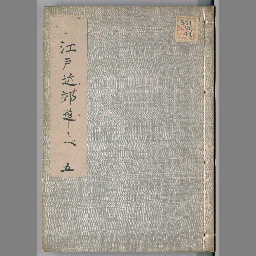 江戸近郊道しるべ 五